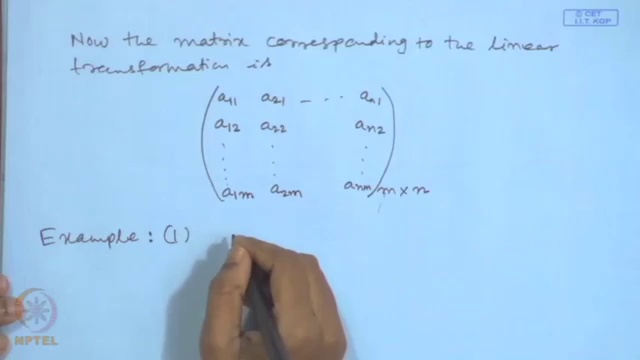 © CET
I.I.T. KGP
Now the matrix corresponding to the linear
transformation is
a11 a21 - ... an1
a12 a22 an2
a1m a2m anm m×n
Example: (1)
NPTEL